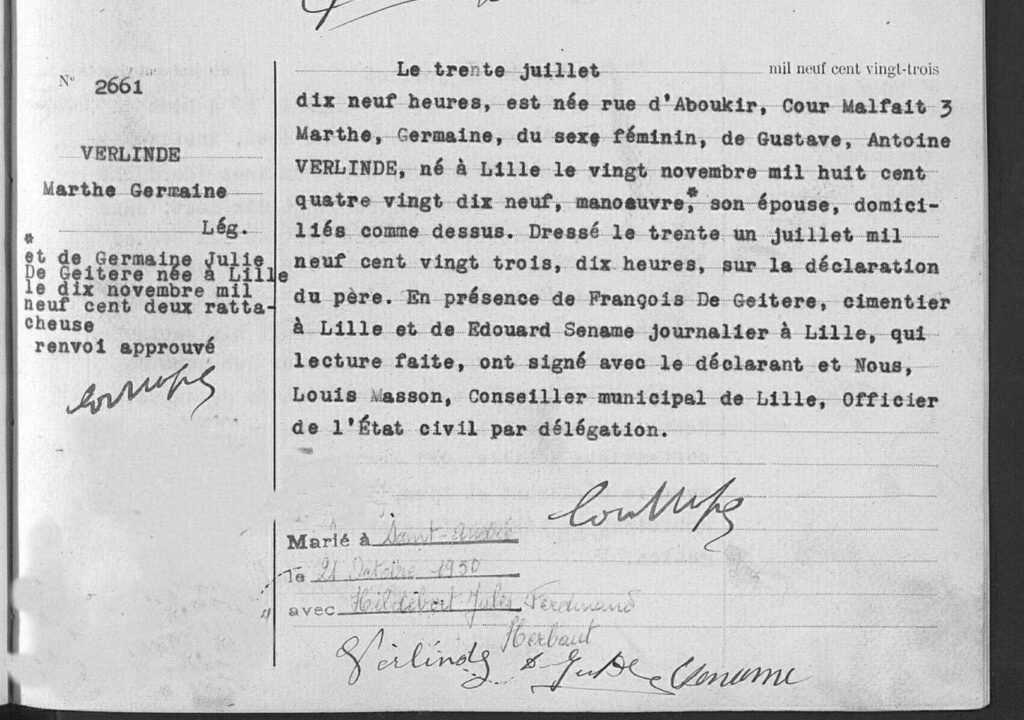 N° 2661
VERLINDE
Marthe Germaine
Lég.
*
et de Germaine Julie
De Geitere née à Lille
le dix novembre mil
neuf cent deux ratta-
cheuse
renvoi approuvé
Le trente juillet mil neuf cent vingt-trois
dix neuf heures, est née rue d'Aboukir, Cour Malfait 3
Marthe, Germaine, du sexe féminin, de Gustave, Antoine
VERLINDE, né à Lille le vingt novembre mil huit cent
quatre vingt dix neuf, manoeuvre,* son épouse, domici-
liés comme dessus. Dressé le trente un juillet mil
neuf cent vingt trois, dix heures, sur la déclaration
du père. En présence de François De Geitere, cimentier
à Lille et de Edouard Sename journalier à Lille, qui
lecture faite, ont signé avec le déclarant et Nous,
Louis Masson, Conseiller municipal de Lille, Officier
de l'État civil par délégation.
Marié à Saint-André
le 21 Octobre 1950
avec Hildebert Jules Ferdinand
Herbaut
Verlinde Sename